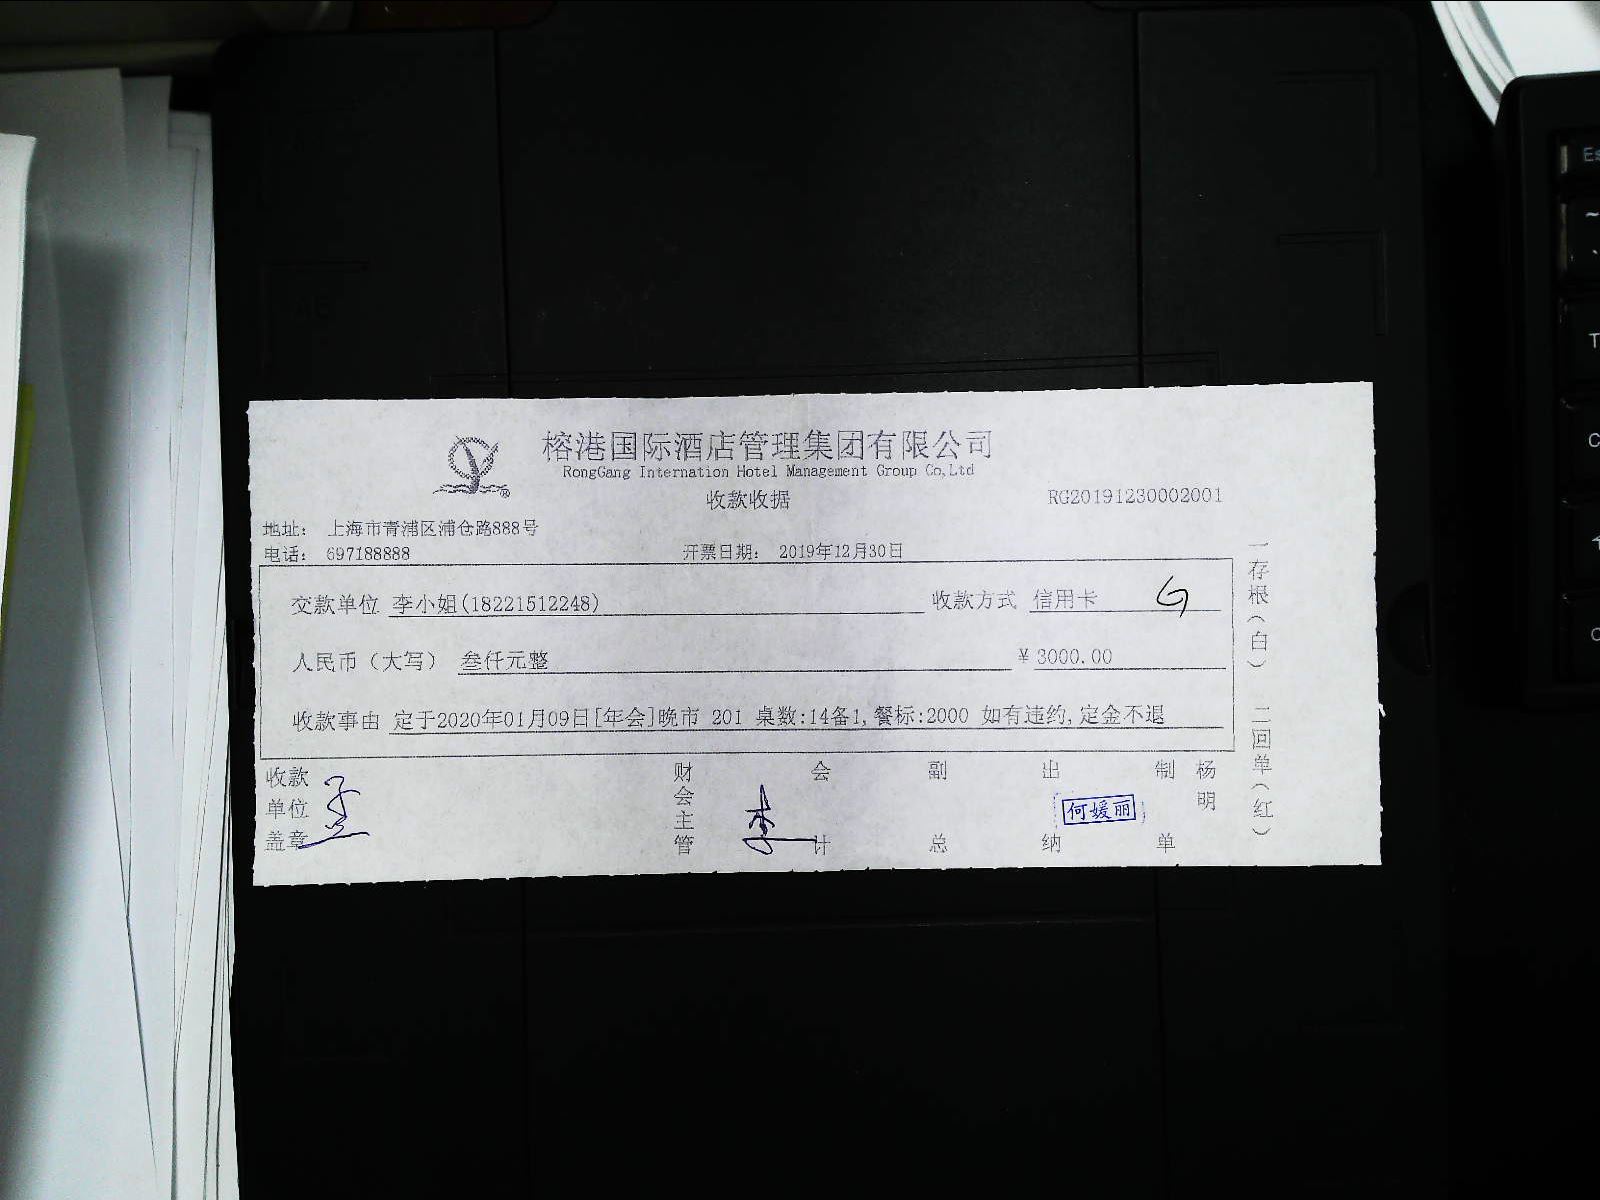 榕港国际酒店管理集团有限公司
RongGang Internation Hotel Management Group Co,Ltd
收款收据
RG20191230002001
地址： 上海市青浦区浦仓路888号
电话： 697188888 开票日期： 2019年12月30日
交款单位 李小姐(18221512248) 收款方式 信用卡
人民币（大写） 叁仟元整 ¥3000.00
收款事由 定于2020年01月09日[年会]晚市 201 桌数:14备1,餐标:2000 如有违约,定金不退
收款单位盖章 财会主管 会计 副总 出纳 何媛丽 制单 杨明
一存根（白） 二回单（红）
Es
T